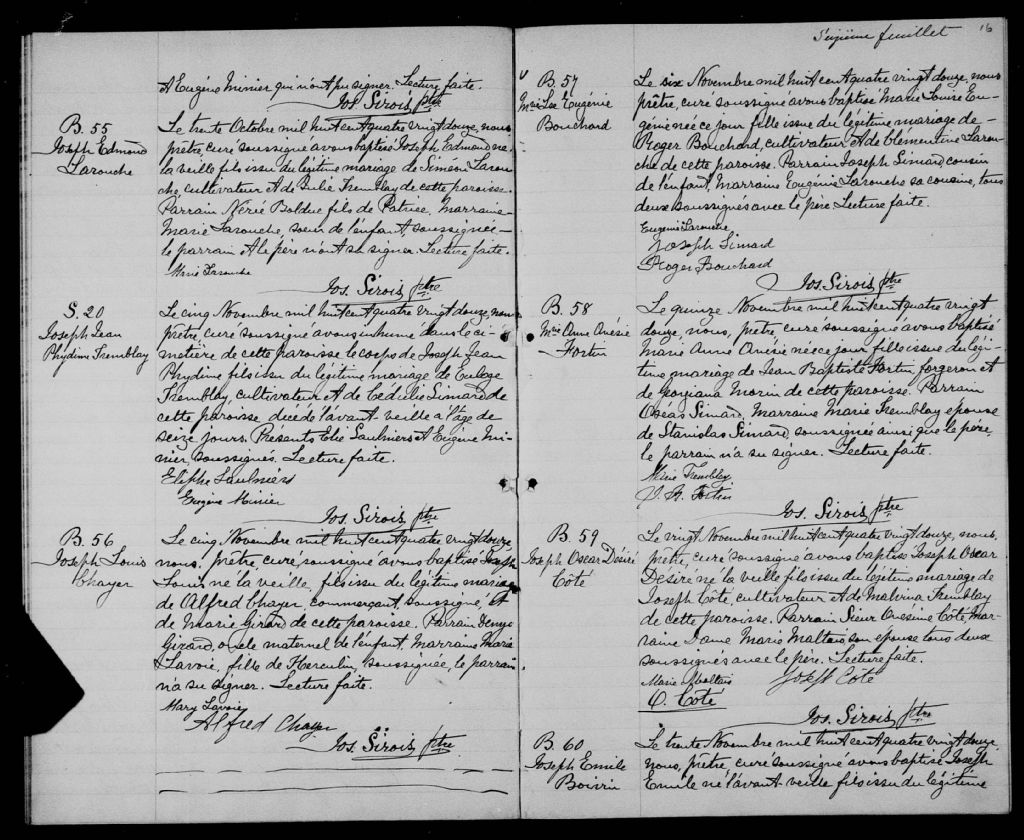 A Eugène Minier qui n'ont pu signer. Lecture faite.
Jos. Sirois ptre
B. 55
Joseph Edmond
Larouche
Le trente Octobre mil huit cent quatre vingt douze, nous
prêtre, curé soussigné avons baptisé Joseph Edmond né
la veille fils issu du légitime mariage de Siméon Larou-
che, cultivateur & de Julie Tremblay de cette paroisse.
Parrain Nérié Bolduc fils de Patrice, Marraine
Marie Larouche, soeur de l'enfant, soussignée
le parrain & le père n'ont su signer. Lecture faite.
Marie Larouche
Jos. Sirois, ptre
S. 20
Joseph Jean
Phydime Tremblay
Le cinq Novembre mil huit cent quatre vingt douze, nous
prêtre, curé soussigné avons inhumé dans le ci-
metière de cette paroisse le corps de Joseph Jean
Phydime fils issu du légitime mariage de Euloge
Tremblay, cultivateur & de Cédulie Simard de
cette paroisse, décédé l'avant-veille à l'âge de
seize jours. Présents Elie Saulniers & Eugène Mi-
nier, soussignés. Lecture faite.
Eliphe Saulniers
Eugène Minier
Jos. Sirois, ptre
B. 56
Joseph Louis
Chayer
Le cinq Novembre mil huit cent quatre vingt douze,
nous, prêtre, curé, soussigné avons baptisé Joseph
Louis né la veille, fils issu du légitime mariage
de Alfred Chayer, commerçant, soussigné, et
de Marie Girard de cette paroisse. Parrain
Girard, oncle maternel de l'enfant, Marraine Marie
Lavoie, fille de Herculin, soussignée, le parrain
n'a su signer. Lecture faite.
Mary Lavoie
Alfred Chayer
Jos. Sirois, ptre
Seizième feuillet 16
B. 57
Marie Lse Eugénie
Bouchard
Le six Novembre mil huit cent quatre vingt douze, nous
prêtre, curé soussigné avons baptisé Marie Louise Eu-
génie née ce jour fille issue du légitime mariage de
Roger Bouchard, cultivateur & de Clémentine Larou-
che de cette paroisse. Parrain Joseph Simard cousin
de l'enfant, Marraine Eugénie Larouche sa cousine, tous
deux soussignés avec le père. Lecture faite.
Eugénie Larouche
Joseph Simard
Roger Bouchard
Jos. Sirois, ptre
B. 58
Mie Anne Onésie
Fortin
Le quinze Novembre mil huit cent quatre vingt
douze, nous, prêtre, curé soussigné avons baptisé
Marie Anne Onésie née ce jour fille issue du légi-
time mariage de Jean Baptiste Fortin, forgeron et
de Georgiana Morin de cette paroisse. Parrain
Oséas Simard, Marraine Marie Tremblay épouse
de Stanislas Simard, soussignée ainsi que le père,
le parrain n'a su signer. Lecture faite.
Marie Tremblay
J. B. Fortin
Jos. Sirois, ptre
B. 59
Joseph Oscar Désiré
Côté
Le vingt Novembre mil huit cent quatre vingt douze, nous,
prêtre, curé soussigné avons baptisé Joseph Oscar
Désiré né la veille fils issu du légitime mariage de
Joseph Côté, cultivateur & de Malvina Tremblay
de cette paroisse. Parrain Sieur Onésime Côté, Mar-
raine Dame Marie Maltais son épouse tous deux
soussignés avec le père. Lecture faite.
Marie Maltais
Joseph Côté
O. Côté
Jos. Sirois, ptre
B. 60
Joseph Emile
Boivin
Le trente Novembre mil huit cent quatre vingt douze,
nous, prêtre, curé soussigné avons baptisé Joseph
Emile né l'avant-veille fils issu du légitime